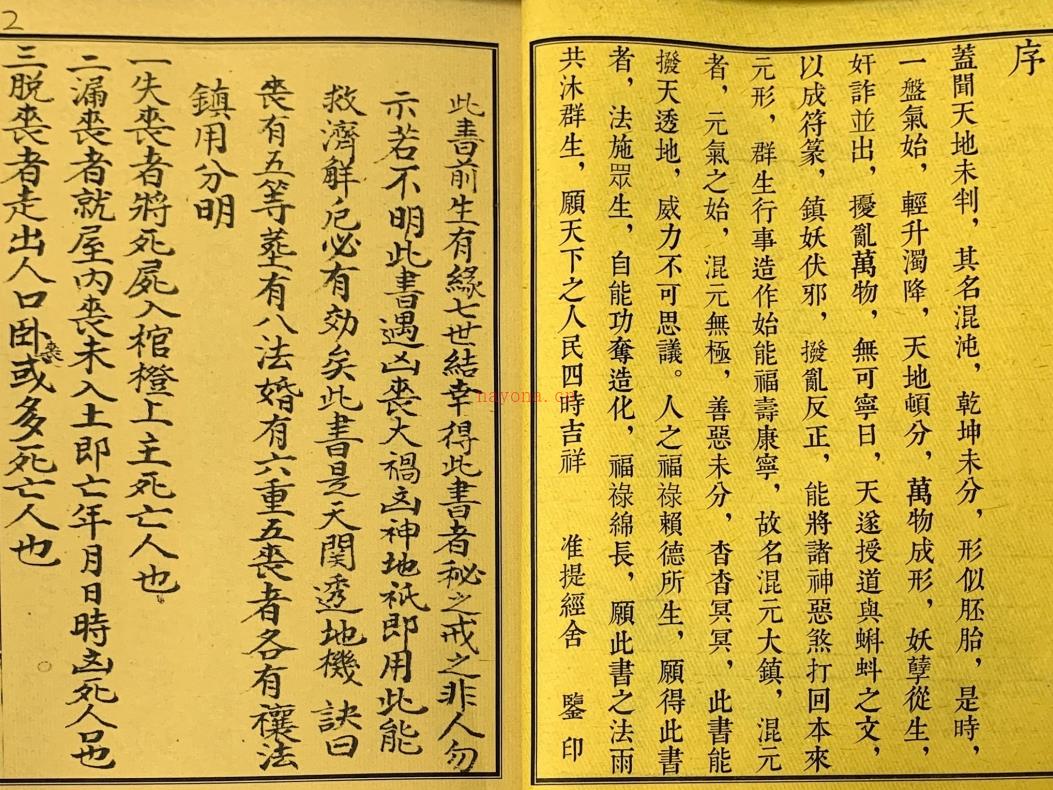 序
蓋聞天地未判，其名混沌，乾坤未分，形似胚胎，是時，
一盤氣始，輕升濁降，天地頓分，萬物成形，妖孽從生，
奸詐並出，擾亂萬物，無可寧日，天遂授道與蝌蚪之文，
以成符篆，鎮妖伏邪，撥亂反正，能將諸神惡煞打回本來
元形，群生行事造作始能福壽康寧，故名混元大鎮，混元
者，元氣之始，混元無極，善惡未分，杳杳冥冥，此書能
撥天透地，威力不可思議。人之福祿賴德所生，願得此書
者，法施眾生，自能功奪造化，福祿綿長，願此書之法雨
共沐群生，願天下之人民四時吉祥　准提經舍　鑒印
此書前生有緣七世結幸得此書者秘之戒之非人勿
示若不明此書遇凶喪大禍凶神地祇即用此能
救濟解厄必有効矣此書是天関透地機　訣曰
喪有五等塟有八法婚有六重五喪者各有禳法
鎮用分明
一失喪者將死屍入棺橙上主死亡人也
二漏喪者就屋內喪未入土即亡年月日時凶死人口也
三脫喪者走出人口卧喪或多死亡人也
2
nayona.cn